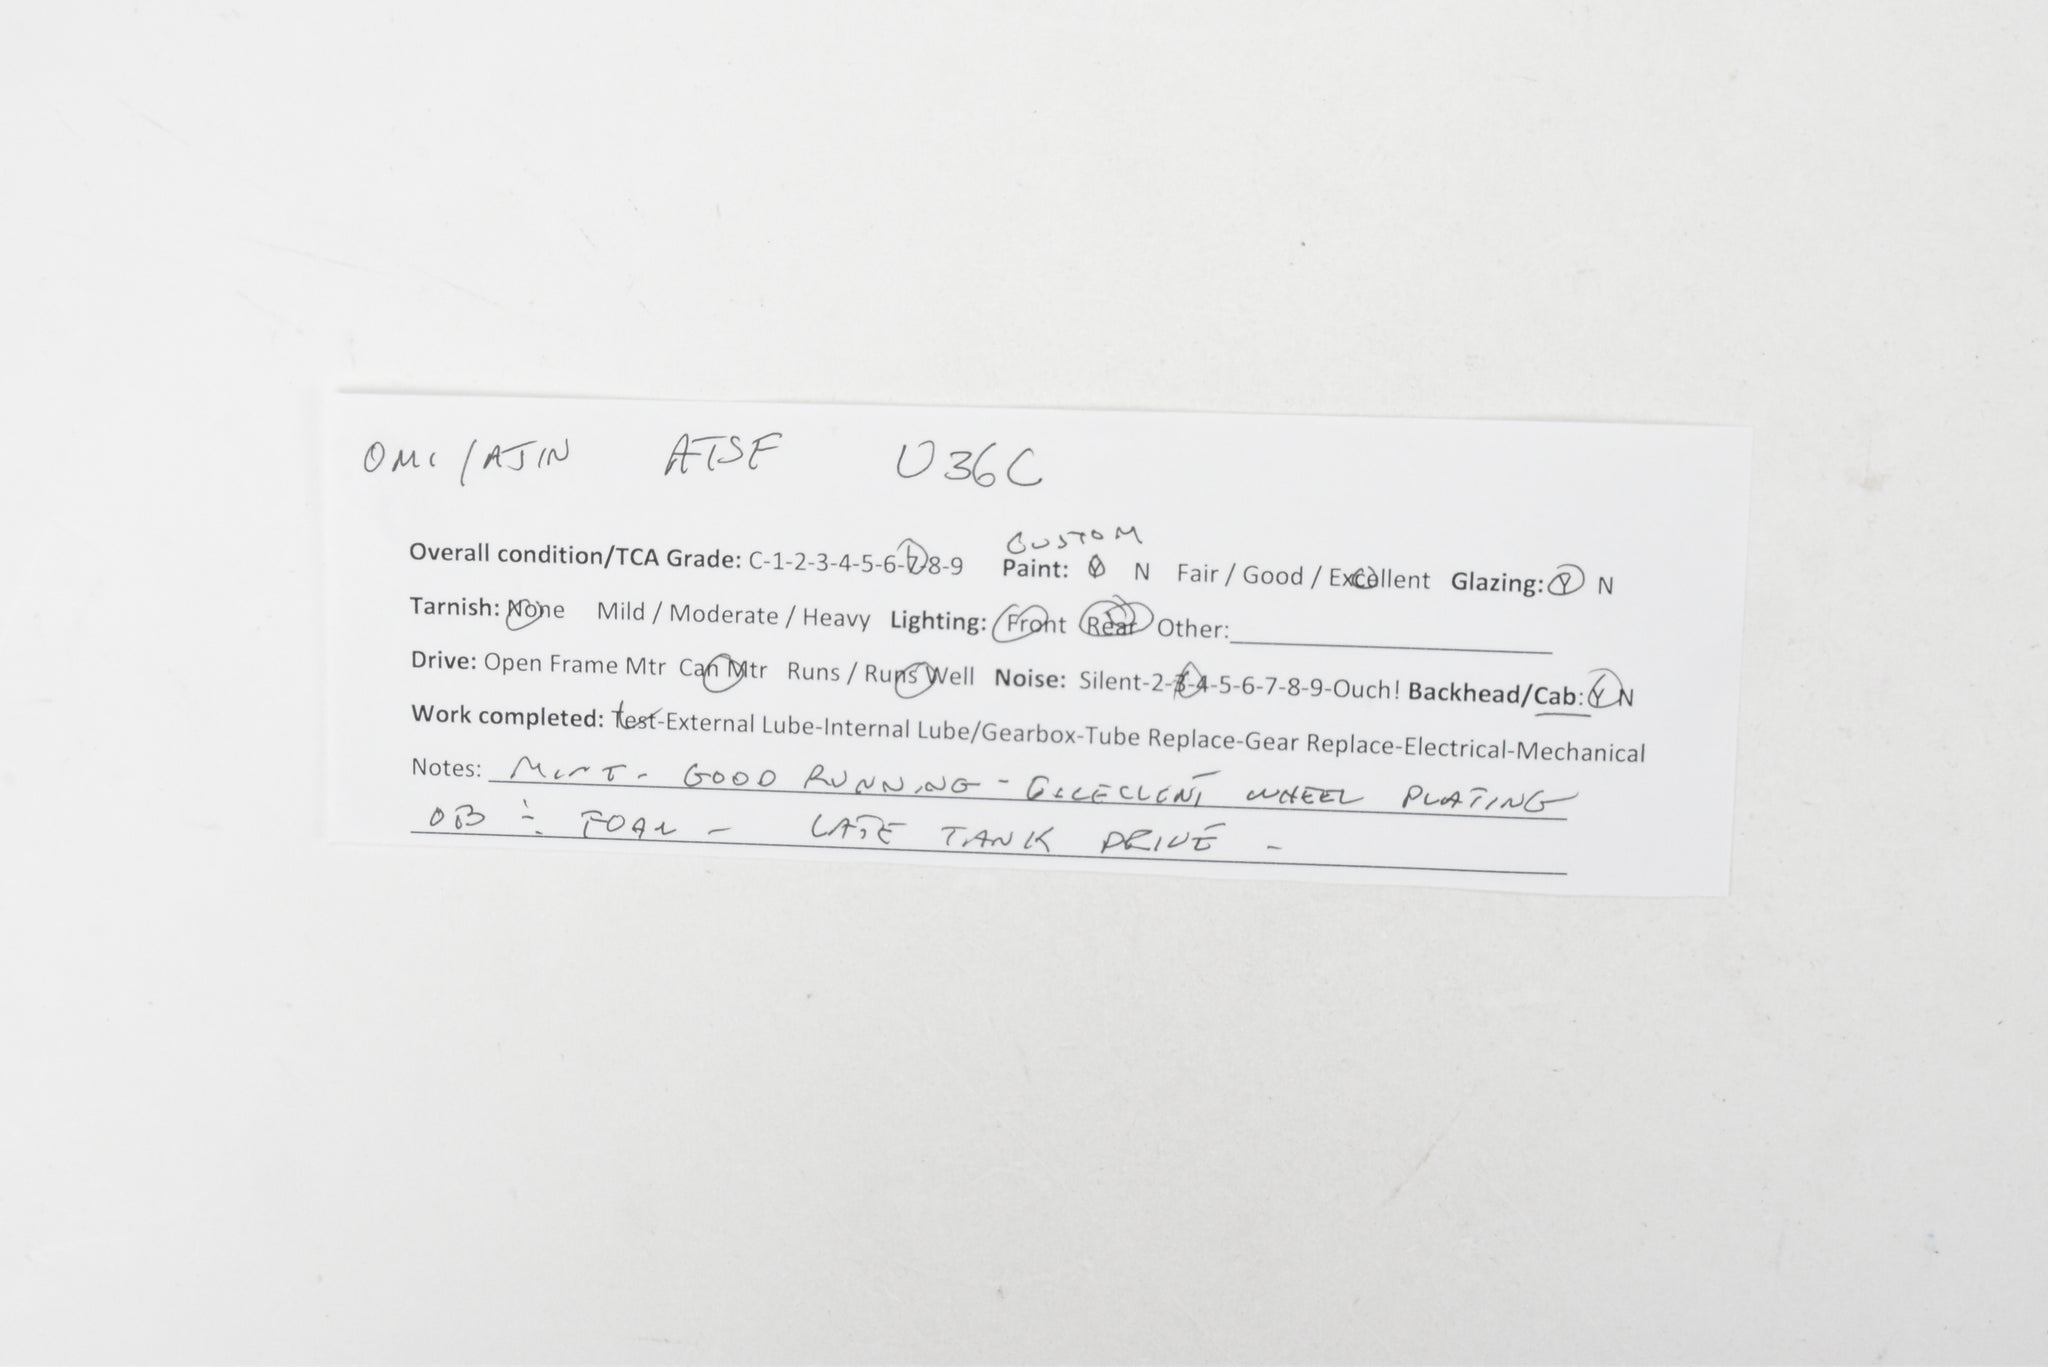 OMI/AJIN ATSF U36C
CUSTOM
Overall condition/TCA Grade: C-1-2-3-4-5-6-7-8-9 Paint: Y N Fair / Good / Excellent Glazing: Y N
Tarnish: None Mild / Moderate / Heavy Lighting: Front Rear Other:
Drive: Open Frame Mtr Can Mtr Runs / Runs Well Noise: Silent-2-3-4-5-6-7-8-9-Ouch! Backhead/Cab: Y N
Work completed: Test-External Lube-Internal Lube/Gearbox-Tube Replace-Gear Replace-Electrical-Mechanical
Notes: MINT - GOOD RUNNING - EXCELLENT WHEEL PLATING
OB ÷ FOAM - LATE TANK DRIVE -